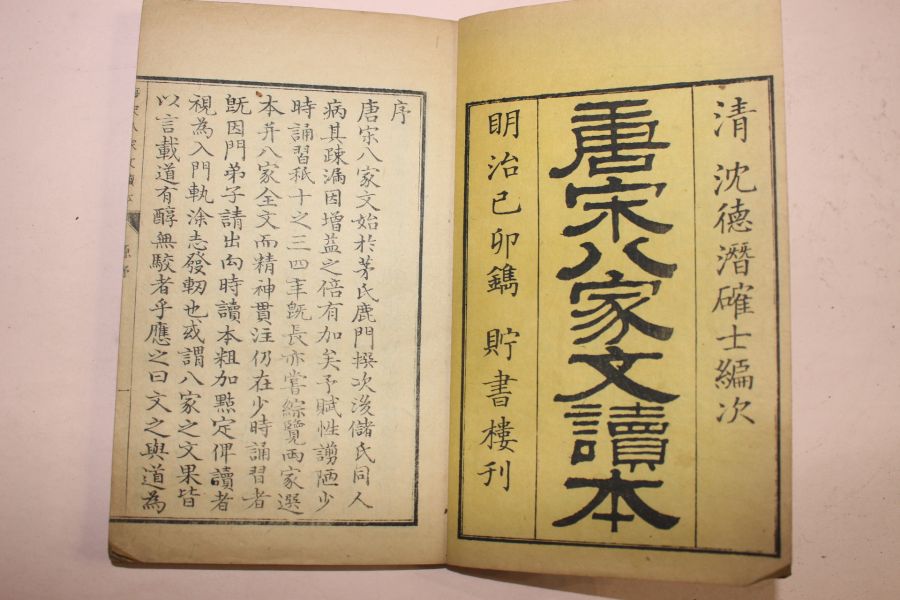 清 沈德潛確士編次
唐宋八家文讀本
明治己卯鐫 貯書樓刊
序
唐宋八家文始於茅氏鹿門撰次後儲氏同人
病其疎漏因增益之倍有加矣予賦性謭陋少
時誦習秪十之三四年既長亦嘗綜覽兩家選
本并八家全文而精神貫注仍在少時誦習者
既因門弟子請出向時讀本粗加點定俾讀者
視為入門軌涂志發軔也或謂八家之文果皆
以言載道有醇無駁者乎應之曰文之與道為